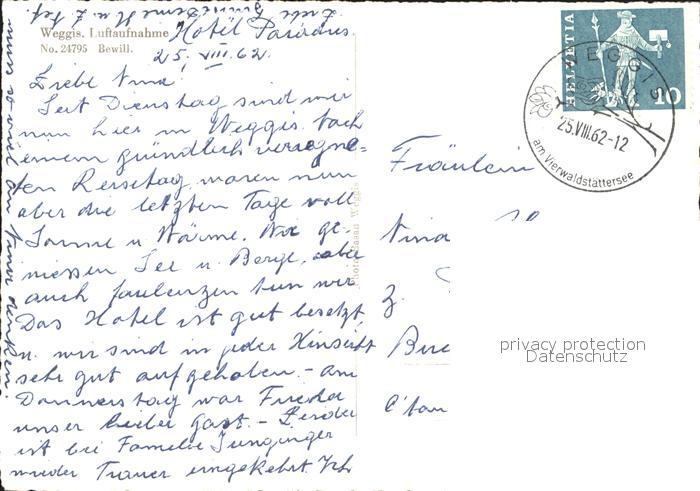 Weggis. Luftaufnahme
No. 24795 Bewill.
Hotel
25. VIII. 62.
Liebe Nina!
Seit Dienstag sind wir
nun hier in Weggis. Nach
einem gründlich verregne=
ten Reisetag waren nun
aber die letzten Tage voll
Sonne u. Wärme. Wir ge-
niessen See u. Berge, aber
auch faulenzen tun wir.
Das Hotel ist gut besetzt
u. wir sind in jeder Hinsicht
sehr gut aufgehoben. – Am
Donnerstag war Frieda
unser lieber Gast. – Leider
ist bei Familie Junginger
wieder Trauer eingekehrt. Ich
Photo Weggis
HELVETIA
10
WEGGIS
25.VIII.62-12
am Vierwaldstättersee
Fräulein
Nina
Z.
privacy protection
Datenschutz